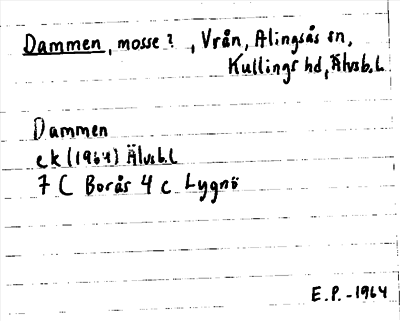 Dammen, mosse? , Vrån, Alingsås sn,
Kullings hd, Älvsb. l.
Dammen
ek (1964) Älvsb. l
7 C Borås 4 c Lygnö
E. P. - 1964